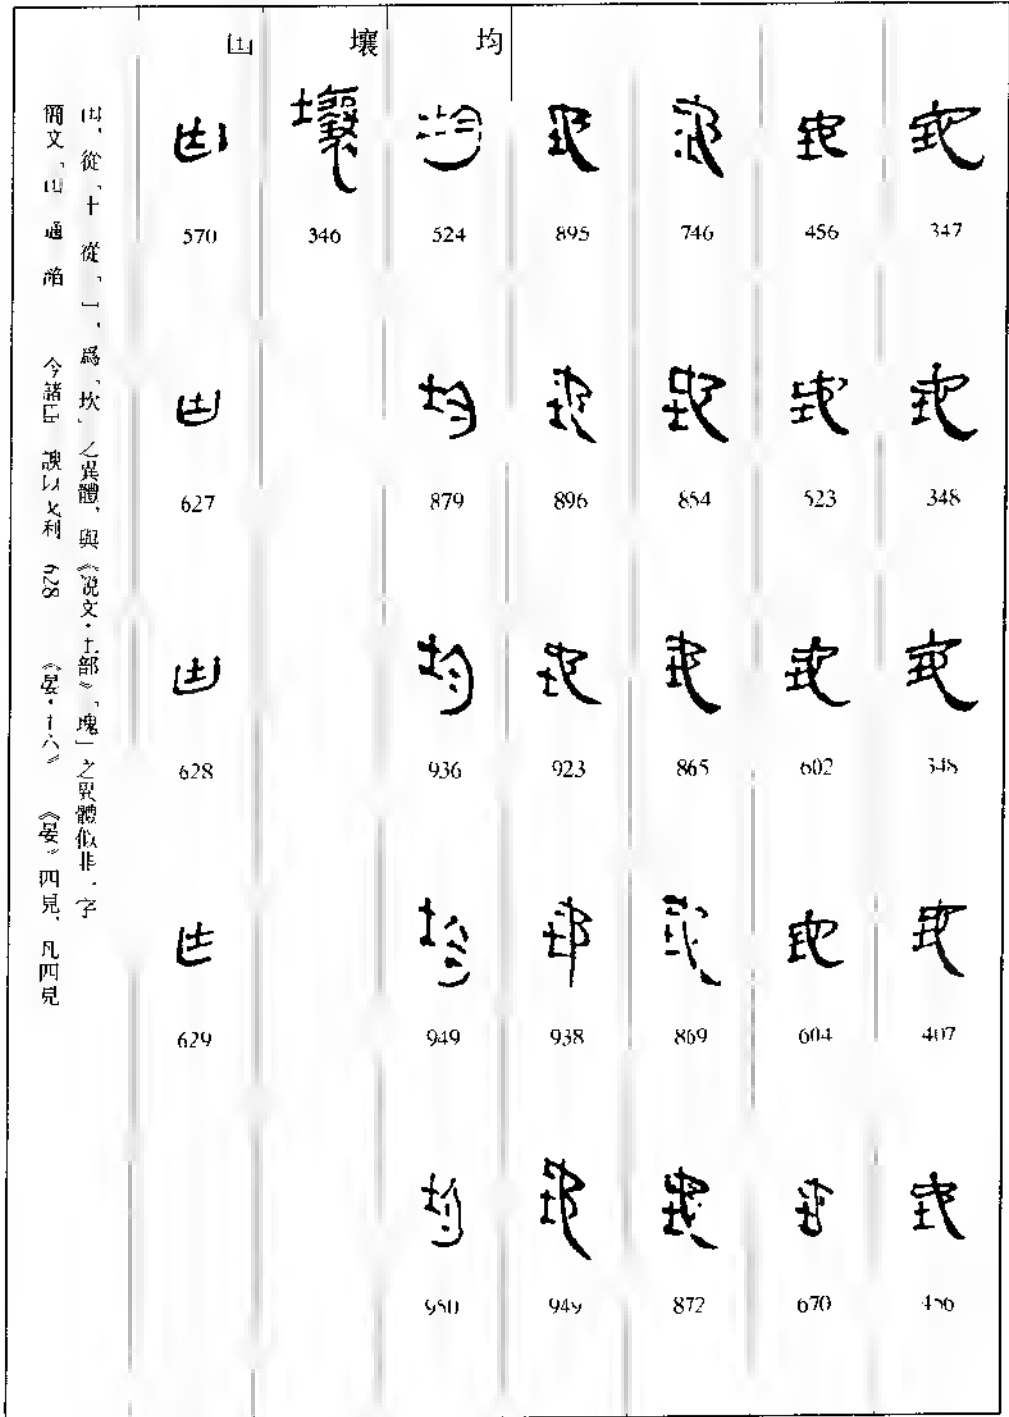 347
348
348
407
456
456
523
602
604
670
746
854
865
869
872
895
896
923
938
949
均
524
879
936
949
950
壤
346
凷
570
627
628
629
凷，從「土」從「凵」，爲「坎」之異體，與《說文·土部》「塊」之異體似非一字
簡文「凷」通「諂」 今諸凷諛以 利 628 《晏·十六》 《晏》四見，凡四見